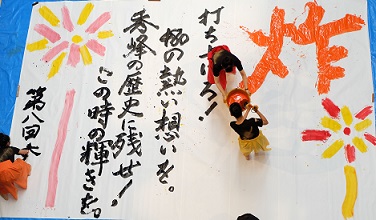 炸
打ち上げろ！
の熱い想いを。
秀峰の歴史に残せ！
この時の輝きを。
第八回